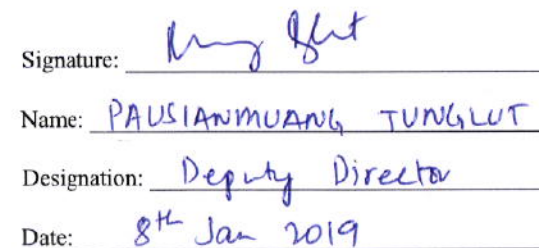 Signature:
Name: PAUSIANMUANG TUNGLUT
Designation: Deputy Director
Date: 8th Jan 2019